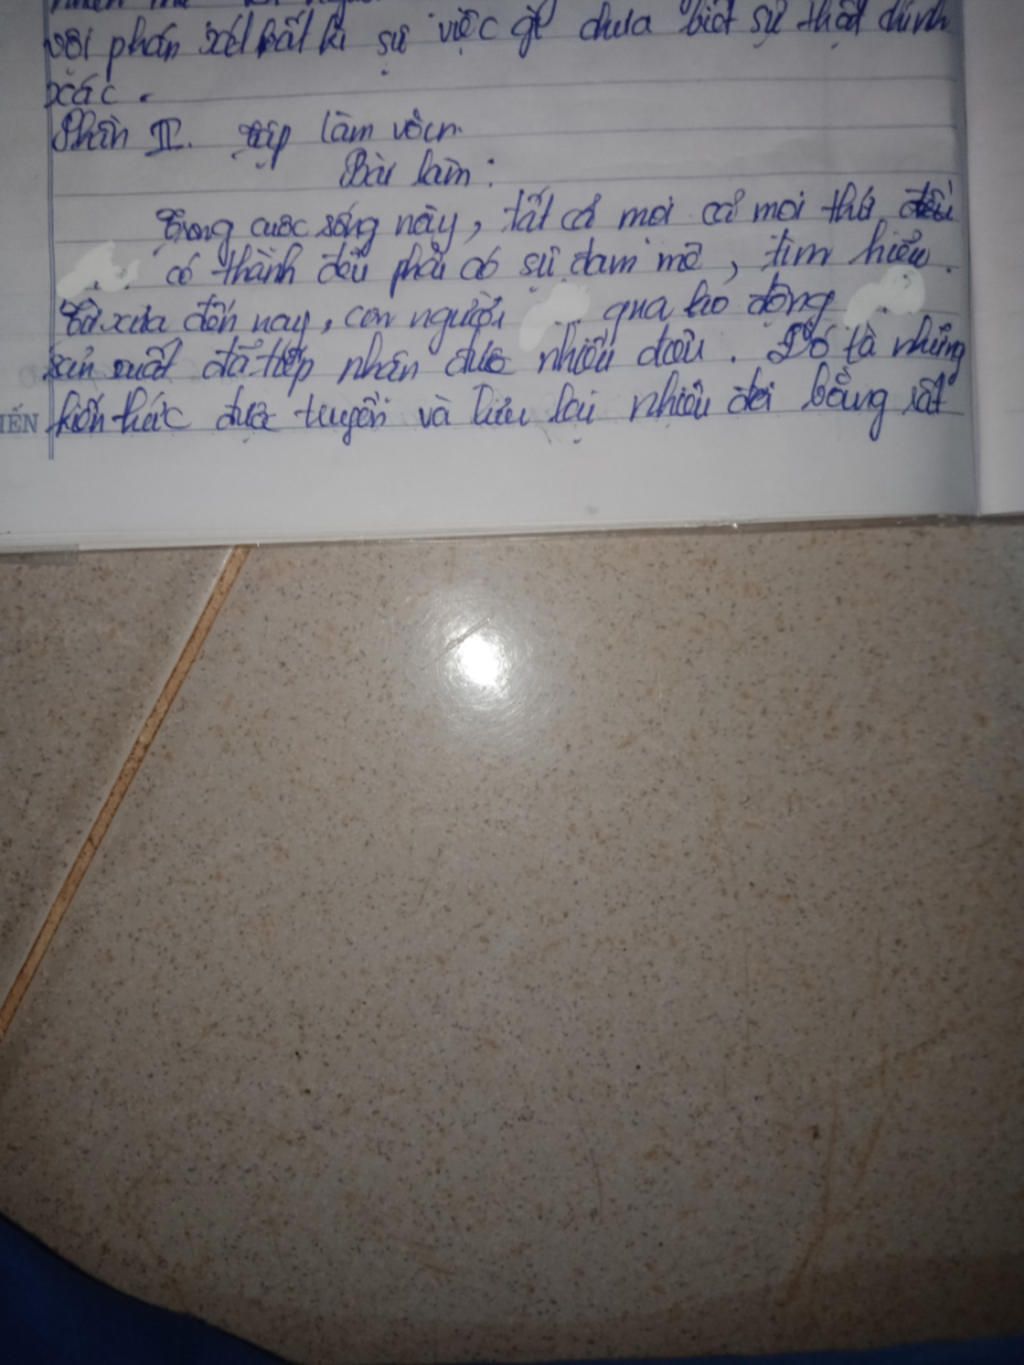 vội phán xét bất kì sự việc gì chưa biết sự thật chính
xác.
Phần II. Tập làm văn.
Bài làm:
Trong cuộc sống này, tất cả mọi cả mọi thứ đều
có thành đều phải có sự đam mê, tìm hiểu.
Từ xưa đến nay, con người qua lao động
sản xuất đã tiếp nhận được nhiều điều. Đó là những
kiến thức được truyền và lưu lại nhiều đời bằng rất
IẾN